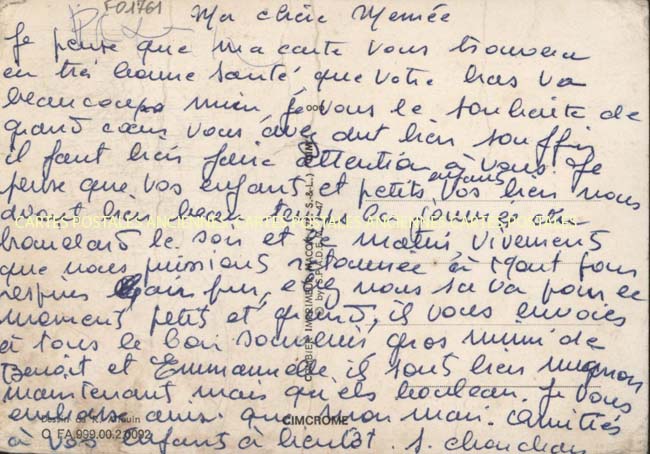 F01761
Ma chère Memée
Je pense que ma carte vous trouvera
en très bonne santé que votre bras va
beaucoup mieu je vous le souhaite de
grand cœur vous avez dut bien souffrir
il faut bien faire attention à vous. Je
pense que vos enfants et petits enfants vos bien nous
avont
CARTES POSTALES ANCIENNES CARTES POSTALES ANCIENNES CARTES POSTALES ANCIENNES
brouelard le soir et le matin vivement
que nous puissions à Mont pour
respirer air pur, chez nous sa va pour le
moment petit et grand, il vous envoies
à tous le bon souvenir gros mimi de
Benoit et Emmanuelle il sont bien mignon
maintenant mais qu'els bouleau. Je vous
embrasse ainsi que mon mari. amitiés
à vos enfants à bientôt. S. chouchan
COMBIER IMPRIMEUR MACON
CIMCROME
Dessin de
O FA.999.00.2.0092